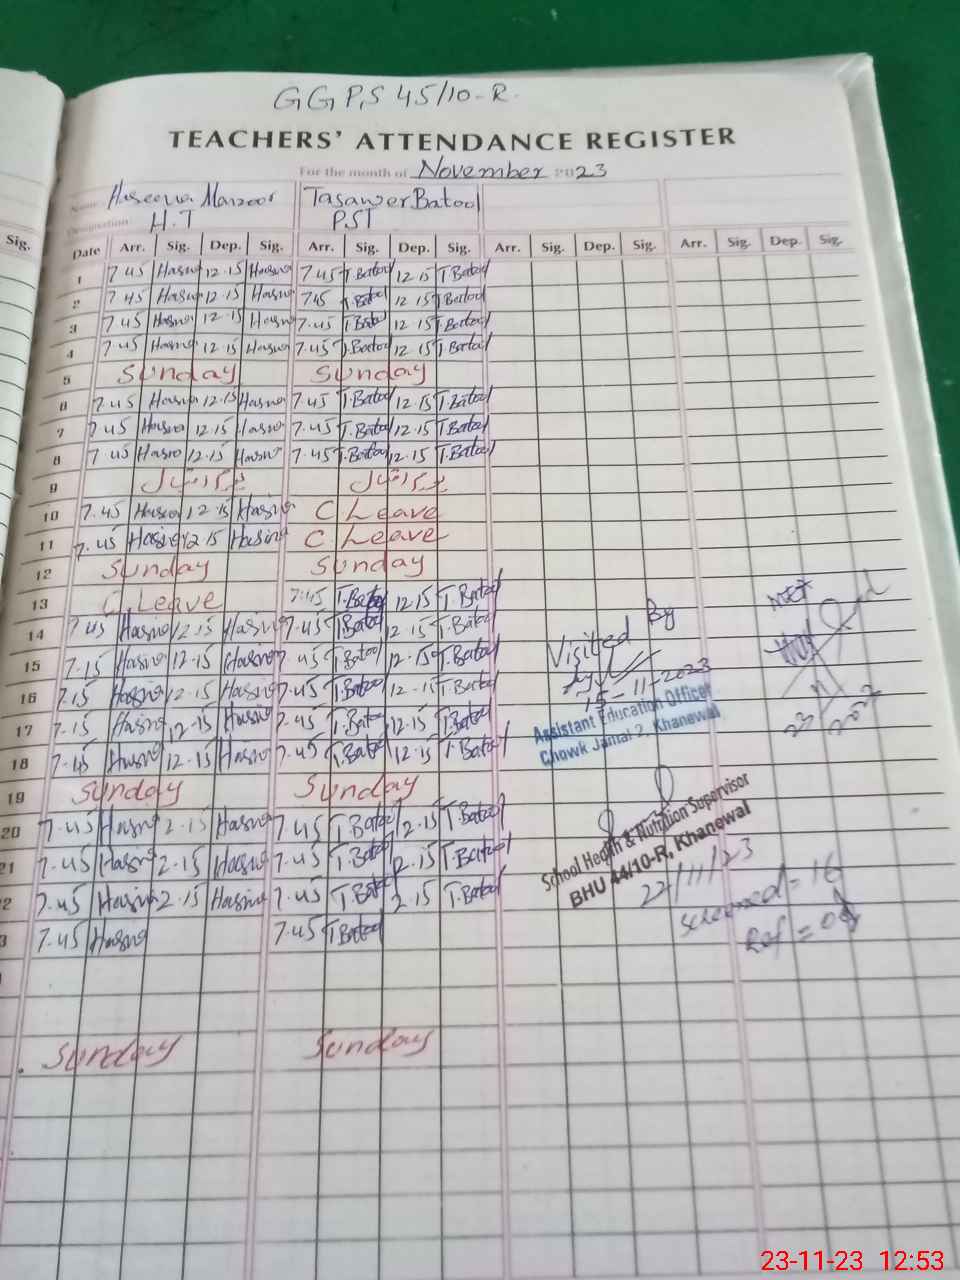 GGPS 45/10-R.
TEACHERS' ATTENDANCE REGISTER
For the month of November 2023
Name Haseena Manzoor Tasawer Batool
Designation H.T PST
Sig.
Date Arr. Sig. Dep. Sig. Arr. Sig. Dep. Sig. Arr. Sig. Dep. Sig. Arr. Sig. Dep. Sig.
1 7.45 Hasina 12.15 Hasina 7.45 T.Batool 12.15 T.Batool
2 7.45 Hasina 12.15 Hasina 7.45 T.Batool 12.15 T.Batool
3 7.45 Hasina 12.15 Hasina 7.45 T.Batool 12.15 T.Batool
4 7.45 Hasina 12.15 Hasina 7.45 T.Batool 12.15 T.Batool
5 Sunday Sunday
6 7.45 Hasina 12.15 Hasina 7.45 T.Batool 12.15 T.Batool
7 7.45 Hasina 12.15 Hasina 7.45 T.Batool 12.15 T.Batool
8 7.45 Hasina 12.15 Hasina 7.45 T.Batool 12.15 T.Batool
9
10 7.45 Hasina 12.15 Hasina C Leave
11 7.45 Hasina 12.15 Hasina C. Leave
12 Sunday Sunday
13 C.Leave 7.45 T.Batool 12.15 T.Batool
14 7.45 Hasina 12.15 Hasina 7.45 T.Batool 12.15 T.Batool
15 7.15 Hasina 12.15 Hasina 7.45 T.Batool 12.15 T.Batool
16 7.15 Hasina 12.15 Hasina 7.45 T.Batool 12.15 T.Batool
17 7.15 Hasina 12.15 Hasina 7.45 T.Batool 12.15 T.Batool
18 7.45 Hasina 12.15 Hasina 7.45 T.Batool 12.15 T.Batool
19 Sunday Sunday
20 7.45 Hasina 2.15 Hasina 7.45 T.Batool 2.15 T.Batool
21 7.45 Hasina 2.15 Hasina 7.45 T.Batool 12.15 T.Batool
2 7.45 Hasina 2.15 Hasina 7.45 T.Batool 2.15 T.Batool
3 7.45 Hasina 7.45 T.Batool
Sunday Sunday
Visited By
15-11-2023
Assistant Education Officer
Chowk Jamal 2, Khanewal
School Health & Nutrition Supervisor
BHU 44/10-R, Khanewal
22/11/23
Screened = 16
Ref = 08
23-11-23 12:53